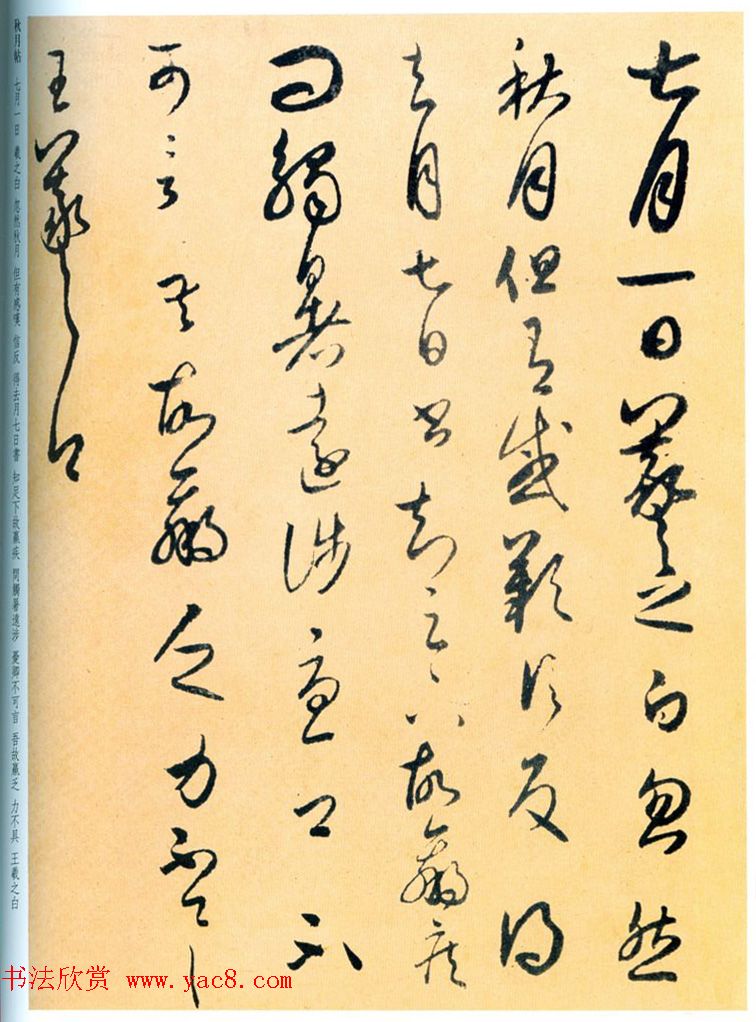 七月一日羲之白忽然
秋月但有感歎信反得
去月七日書知足下故羸疾
问觸暑遠涉憂卿不
可言吾故羸乏力不具
王羲之白
秋月帖 七月一日 羲之白 忽然秋月 但有感嘆 信反 得去月七日書 知足下故羸疾 問觸暑遠涉 憂卿不可言 吾故羸乏 力不具 王羲之白
书法欣赏 www.yac8.com